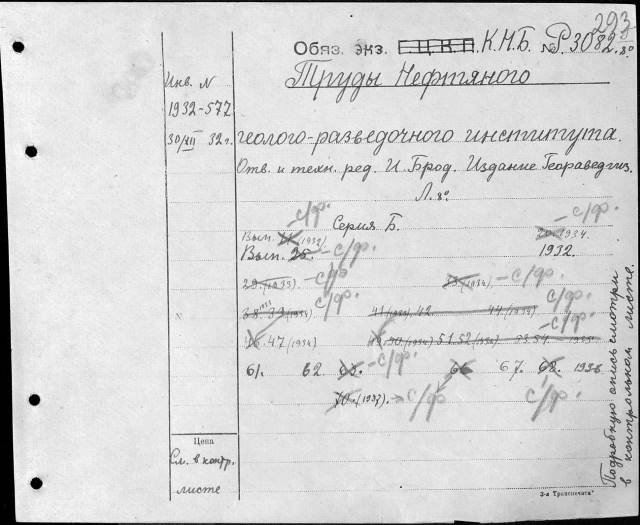 293
Обяз. экз. Г.Ц.К.П. К.Н.Б. № Р.3082. 8°
Труды Нефтяного
Инв. N
1932-577
30/XII 32 г.
геолого-разведочного института.
Отв. и техн. ред. И. Брод. Издание Георазведгиз.
Л. 8°
Серия Б.
с/ф.
Вып. (1932)
20. 1934.
- с/ф.
Вып. 25. - с/ф.
1932.
29. (1933). - с/ф
(1934). - с/ф.
38. 39 (1934) с/ф.
41 (1934), 42. 44. (1934) с/ф.
46. 47 (1934)
49. 50 (1934) 51. 52 (1934) 53. 54 - с/ф.
61. 62. 63. - с/ф. 66 67. 68. 1936
70. (1937). - с/ф с/ф.
Цена
См. в контр.
листе
Подробную опись смотри
в контрольном листе.
3-я Транспечать